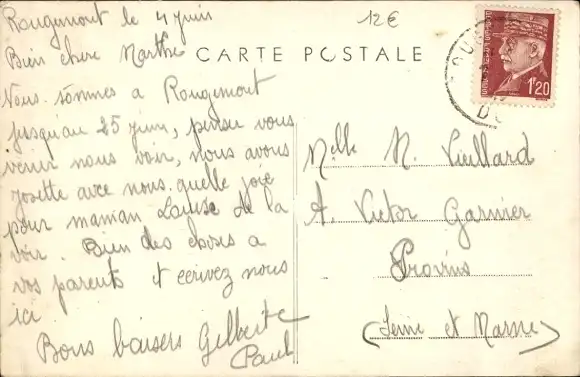 Rougemont le 4 juin
12€
Bien chère Marthe
CARTE POSTALE
Nous sommes a Rougemont
jusqu'au 25 juin, pensez vous
venir nous voir, nous avons
Josette avec nous. quelle joie
pour maman Louise de la
voir. Bien des choses a
vos parents et ecrivez nous
ici
Bons baisers Gilberte
Paul
1F20
Melle M. Vieillard
A. Victor Garnier
Provins
(Seine et Marne)